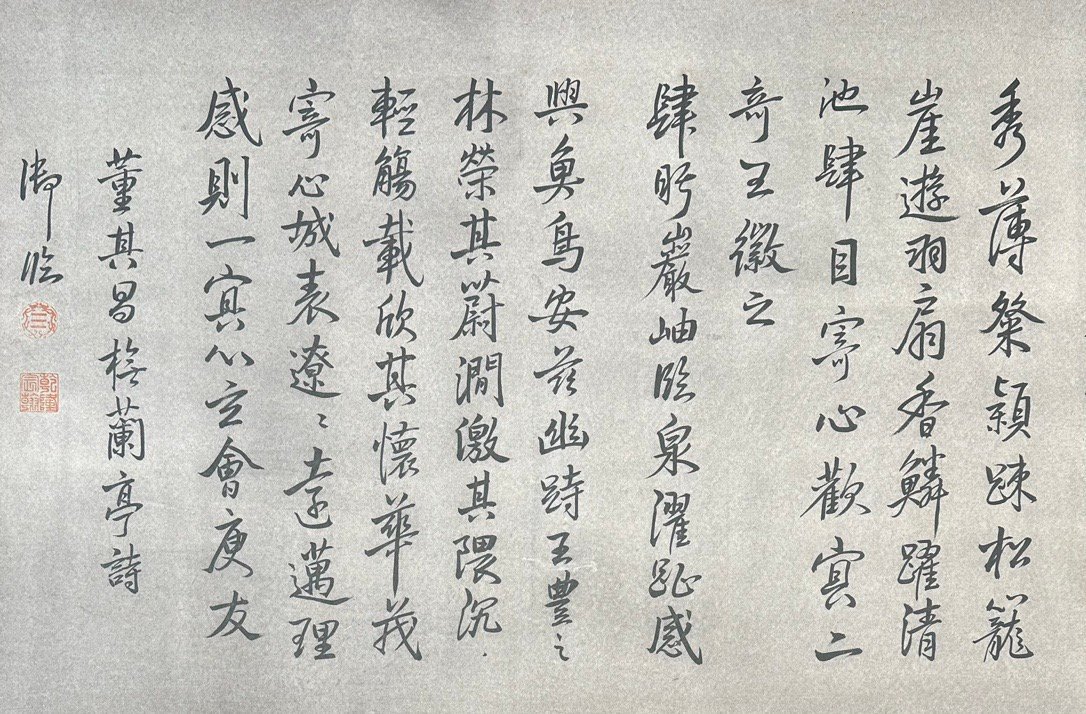 秀薄粲穎疎松籠
崖遊羽扇香鱗躍清
池肆目寄心歡冥二
奇王徽之
肆眄巖岫臨泉濯趾感
興魚鳥安茲幽峙王豐之
林榮其蔚澗激其隈汎
輕觴載欣其懷華茂
寄心域表遼〻遠邁理
感則一冥心玄會庾友
董其昌橅蘭亭詩
御臨
乾隆宸翰